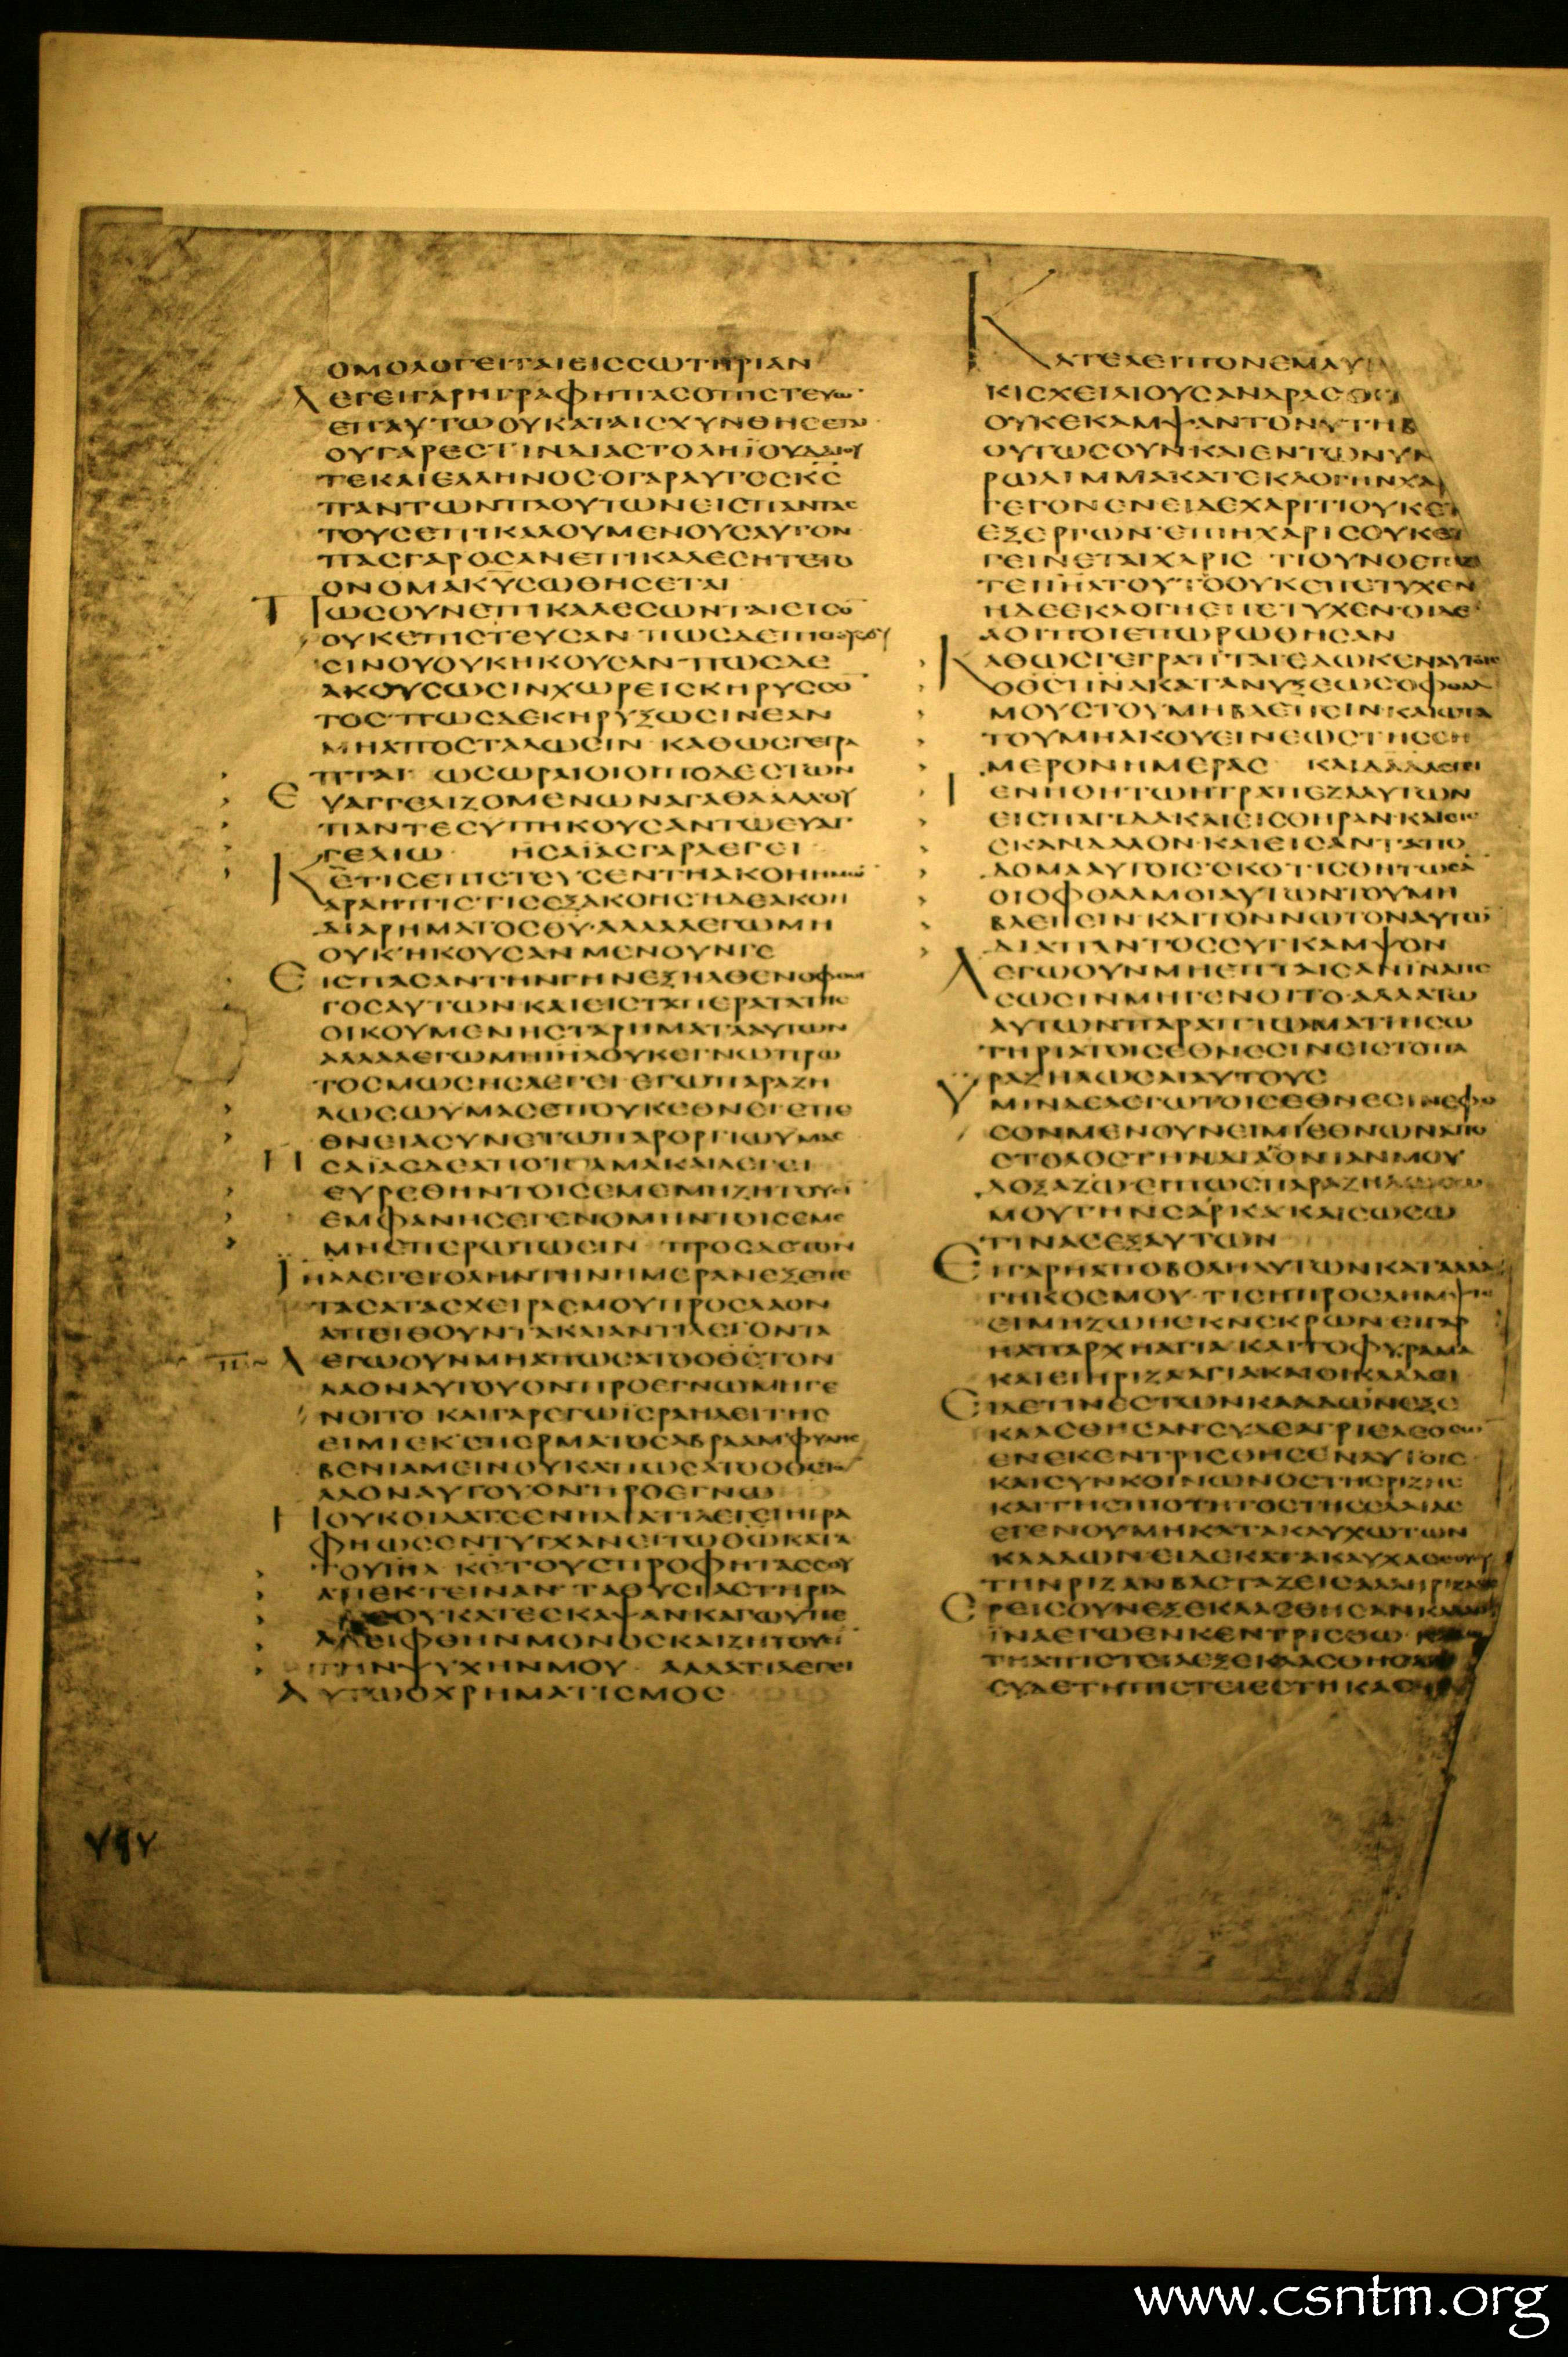 ΟΜΟΛΟΓΕΙΤΑΙΕΙϹϹΩΤΗΡΙΑΝ
ΛΕΓΕΙΓΑΡΗΓΡΑΦΗΠΑϹΟΠΙϹΤΕΥΩ
ΕΠΑΥΤΩΟΥΚΑΤΑΙϹΧΥΝΘΗϹΕΤΑΙ
ΟΥΓΑΡΕϹΤΙΝΔΙΑϹΤΟΛΗΪΟΥΔΑΙΟΥ
ΤΕΚΑΙΕΛΛΗΝΟϹΟΓΑΡΑΥΤΟϹΚϹ
ΠΑΝΤΩΝΠΛΟΥΤΩΝΕΙϹΠΑΝΤΑϹ
ΤΟΥϹΕΠΙΚΑΛΟΥΜΕΝΟΥϹΑΥΤΟΝ
ΠΑϹΓΑΡΟϹΑΝΕΠΙΚΑΛΕϹΗΤΕΤΟ
ΟΝΟΜΑΚΥϹΩΘΗϹΕΤΑΙ
ΠΩϹΟΥΝΕΠΙΚΑΛΕϹΩΝΤΑΙΕΙϹΟ
ΟΥΚΕΠΙϹΤΕΥϹΑΝ ΠΩϹΔΕΠΙϹΤΕΥϹΟΥ
ϹΙΝΟΥΟΥΚΗΚΟΥϹΑΝ ΠΩϹΔΕ
ΑΚΟΥϹΩϹΙΝΧΩΡΕΙϹΚΗΡΥϹϹΟ
ΤΟϹ ΠΩϹΔΕΚΗΡΥΞΩϹΙΝΕΑΝ
ΜΗΑΠΟϹΤΑΛΩϹΕΙΝ ΚΑΘΩϹΓΕΓΡΑ
ΠΤΑΙ ΩϹΩΡΑΙΟΙΟΙΠΟΔΕϹΤΩΝ
ΕΥΑΓΓΕΛΙΖΟΜΕΝΩΝΑΓΑΘΑΑΛΛΟΥ
ΠΑΝΤΕϹΥΠΗΚΟΥϹΑΝΤΩΕΥΑΓ
ΓΕΛΙΩ ΗϹΑΪΑϹΓΑΡΛΕΓΕΙ
ΚΕΤΙϹΕΠΙϹΤΕΥϹΕΝΤΗΑΚΟΗΗΜΩ
ΑΡΑΗΠΙϹΤΙϹΕΞΑΚΟΗϹΗΔΕΑΚΟΗ
ΔΙΑΡΗΜΑΤΟϹΘΥ ΑΛΛΑΛΕΓΩΜΗ
ΟΥΚΗΚΟΥϹΑΝ ΜΕΝΟΥΝΓΕ
ΕΙϹΠΑϹΑΝΤΗΝΓΗΝΕΞΗΛΘΕΝΟΦΘΟΓ
ΓΟϹΑΥΤΩΝΚΑΙΕΙϹΤΑΠΕΡΑΤΑΤΗϹ
ΟΙΚΟΥΜΕΝΗϹΤΑΡΗΜΑΤΑΑΥΤΩΝ
ΑΛΛΑΛΕΓΩΜΗΙΗΛΟΥΚΕΓΝΩΠΡΩ
ΤΟϹΜΩϹΗϹΛΕΓΕΙ ΕΓΩΠΑΡΑΖΗ
ΛΩϹΩΥΜΑϹΕΠΟΥΚΕΘΝΕΙΕΠΙΕ
ΘΝΕΙΑϹΥΝΕΤΩΠΑΡΟΡΓΙΩΥΜΑϹ
ΗϹΑΪΑϹΔΕΑΠΟΤΟΛΜΑΚΑΙΛΕΓΕΙ
ΕΥΡΕΘΗΝΤΟΙϹΕΜΕΜΗΖΗΤΟΥϹΙ
ΕΜΦΑΝΗϹΕΓΕΝΟΜΗΝΤΟΙϹΕΜΕ
ΜΗΕΠΕΡΩΤΩϹΕΙΝ ΠΡΟϹΔΕΤΟΝ
ΙΗΛΛΕΓΕΙΟΛΗΝΤΗΝΗΜΕΡΑΝΕΞΕΠΕ
ΤΑϹΑΤΑϹΧΕΙΡΑϹΜΟΥΠΡΟϹΛΑΟΝ
ΑΠΕΙΘΟΥΝΤΑΚΑΙΑΝΤΙΛΕΓΟΝΤΑ
ΛΕΓΩΟΥΝΜΗΑΠΩϹΑΤΟΟΘϹΤΟΝ
ΛΑΟΝΑΥΤΟΥΟΝΠΡΟΕΓΝΩΜΗΓΕ
ΝΟΙΤΟ ΚΑΙΓΑΡΕΓΩΙϹΡΑΗΛΕΙΤΗϹ
ΕΙΜΙΕΚϹΠΕΡΜΑΤΟϹΑΒΡΑΑΜΦΥΛΗϹ
ΒΕΝΙΑΜΕΙΝΟΥΚΑΠΩϹΑΤΟΟΘϹΤΟΝ
ΛΑΟΝΑΥΤΟΥΟΝΠΡΟΕΓΝΩ
ΗΟΥΚΟΙΔΑΤΕΕΝΗΛΙΑΤΙΛΕΓΕΙΗΓΡΑ
ΦΗΩϹΕΝΤΥΓΧΑΝΕΙΤΩΘΩΚΑΤΑ
ΤΟΥΙΗΛ ΚΕΤΟΥϹΠΡΟΦΗΤΑϹϹΟΥ
ΑΠΕΚΤΕΙΝΑΝ ΤΑΘΥϹΙΑϹΤΗΡΙΑ
ϹΟΥΚΑΤΕϹΚΑΨΑΝΚΑΓΩΥΠΕ
ΛΕΙΦΘΗΝΜΟΝΟϹΚΑΙΖΗΤΟΥϹΙ
ΤΗΝΨΥΧΗΝΜΟΥ ΑΛΛΑΤΙΛΕΓΕΙ
ΑΥΤΩΟΧΡΗΜΑΤΙϹΜΟϹ
ΚΑΤΕΛΕΙΠΟΝΕΜΑΥΤΩ
ΚΙϹΧΕΙΛΙΟΥϹΑΝΔΡΑϹ
ΟΥΚΕΚΑΜΨΑΝΓΟΝΥΤΗΒ
ΟΥΤΩϹΟΥΝΚΑΙΕΝΤΩΝΥΝ
ΡΩΛΙΜΜΑΚΑΤΕΚΛΟΓΗΝΧΑ
ΓΕΓΟΝΕΝΕΙΔΕΧΑΡΙΤΙΟΥΚΕΤΙ
ΕΞΕΡΓΩΝ ΕΠΙΗΧΑΡΙϹΟΥΚΕΤΙ
ΓΕΙΝΕΤΑΙΧΑΡΙϹ ΤΙΟΥΝΟΕΠΙΖΗ
ΤΕΙΙΗΛΤΟΥΤΟΟΥΚΕΠΕΤΥΧΕΝ
ΗΔΕΕΚΛΟΓΗΕΠΕΤΥΧΕΝ ΟΙΔΕ
ΛΟΙΠΟΙΕΠΩΡΩΘΗϹΑΝ
ΚΑΘΩϹΓΕΓΡΑΠΤΑΙΕΔΩΚΕΝΑΥΤΟΙϹ
ΟΘϹΠΝΑΚΑΤΑΝΥΞΕΩϹΟΦΘΑΛ
ΜΟΥϹΤΟΥΜΗΒΛΕΠΕΙΝΚΑΙΩΤΑ
ΤΟΥΜΗΑΚΟΥΕΙΝΕΩϹΤΗϹϹΗ
ΜΕΡΟΝΗΜΕΡΑϹ ΚΑΙΔΑΔΛΕΓΕΙ
ΓΕΝΗΘΗΤΩΗΤΡΑΠΕΖΑΑΥΤΩΝ
ΕΙϹΠΑΓΙΔΑΚΑΙΕΙϹΘΗΡΑΝΚΑΙΕΙϹ
ϹΚΑΝΔΑΛΟΝΚΑΙΕΙϹΑΝΤΑΠΟ
ΔΟΜΑΑΥΤΟΙϹϹΚΟΤΙϹΘΗΤΩϹΑ
ΟΙΟΦΘΑΛΜΟΙΑΥΤΩΝΤΟΥΜΗ
ΒΛΕΠΕΙΝΚΑΙΤΟΝΝΩΤΟΝΑΥΤΩ
ΔΙΑΠΑΝΤΟϹϹΥΓΚΑΜΨΟΝ
ΛΕΓΩΟΥΝΜΗΕΠΤΑΙϹΑΝΙΝΑΠΕ
ϹΩϹΙΝΜΗΓΕΝΟΙΤΟ ΑΛΛΑΤΩ
ΑΥΤΩΝΠΑΡΑΠΤΩΜΑΤΙΗϹΩ
ΤΗΡΙΑΤΟΙϹΕΘΝΕϹΙΝΕΙϹΤΟΠΑ
ΡΑΖΗΛΩϹΑΙΑΥΤΟΥϹ
ΥΜΙΝΔΕΛΕΓΩΤΟΙϹΕΘΝΕϹΙΝΕΦΟ
ϹΟΝΜΕΝΟΥΝΕΙΜΙΕΘΝΩΝΑΠΟ
ϹΤΟΛΟϹΤΗΝΔΙΑΚΟΝΙΑΝΜΟΥ
ΔΟΞΑΖΩΕΙΠΩϹΠΑΡΑΖΗΛΩϹΩ
ΜΟΥΤΗΝϹΑΡΚΑΚΑΙϹΩϹΩ
ΤΙΝΑϹΕΞΑΥΤΩΝ
ΕΙΓΑΡΗΑΠΟΒΟΛΗΑΥΤΩΝΚΑΤΑΛΛΑ
ΓΗΚΟϹΜΟΥ ΤΙϹΗΠΡΟϹΛΗΜΨΙϹ
ΕΙΜΗΖΩΗΕΚΝΕΚΡΩΝΕΙΓΑΡ
ΗΑΠΑΡΧΗΑΓΙΑΚΑΙΤΟΦΥΡΑΜΑ
ΚΑΙΕΙΗΡΙΖΑΑΓΙΑΚΑΙΟΙΚΛΑΔΟΙ
ΕΙΔΕΤΙΝΕϹΤΩΝΚΛΑΔΩΝΕΞΕ
ΚΛΑϹΘΗϹΑΝϹΥΔΕΑΓΡΙΕΛΕΟϹΩΝ
ΕΝΕΚΕΝΤΡΙϹΘΗϹΕΝΑΥΤΟΙϹ
ΚΑΙϹΥΝΚΟΙΝΩΝΟϹΤΗϹΡΙΖΗϹ
ΚΑΙΤΗϹΠΙΟΤΗΤΟϹΤΗϹΕΛΑΙΑϹ
ΕΓΕΝΟΥΜΗΚΑΤΑΚΑΥΧΩΤΩΝ
ΚΛΑΔΩΝΕΙΔΕΚΑΤΑΚΑΥΧΑϹΑΙΟΥϹΥ
ΤΗΝΡΙΖΑΝΒΑϹΤΑΖΕΙϹΑΛΛΗΡΙΖΑϹΕ
ΕΡΕΙϹΟΥΝΕΞΕΚΛΑϹΘΗϹΑΝΚΛΑΔΟΙ
ΙΝΑΕΓΩΕΝΚΕΝΤΡΙϹΘΩ
ΤΗΑΠΙϹΤΕΙΑΕΞΕΚΛΑϹΘΗϹΑΝ
ϹΥΔΕΤΗΠΙϹΤΕΙΕϹΤΗΚΑϹ
www.csntm.org